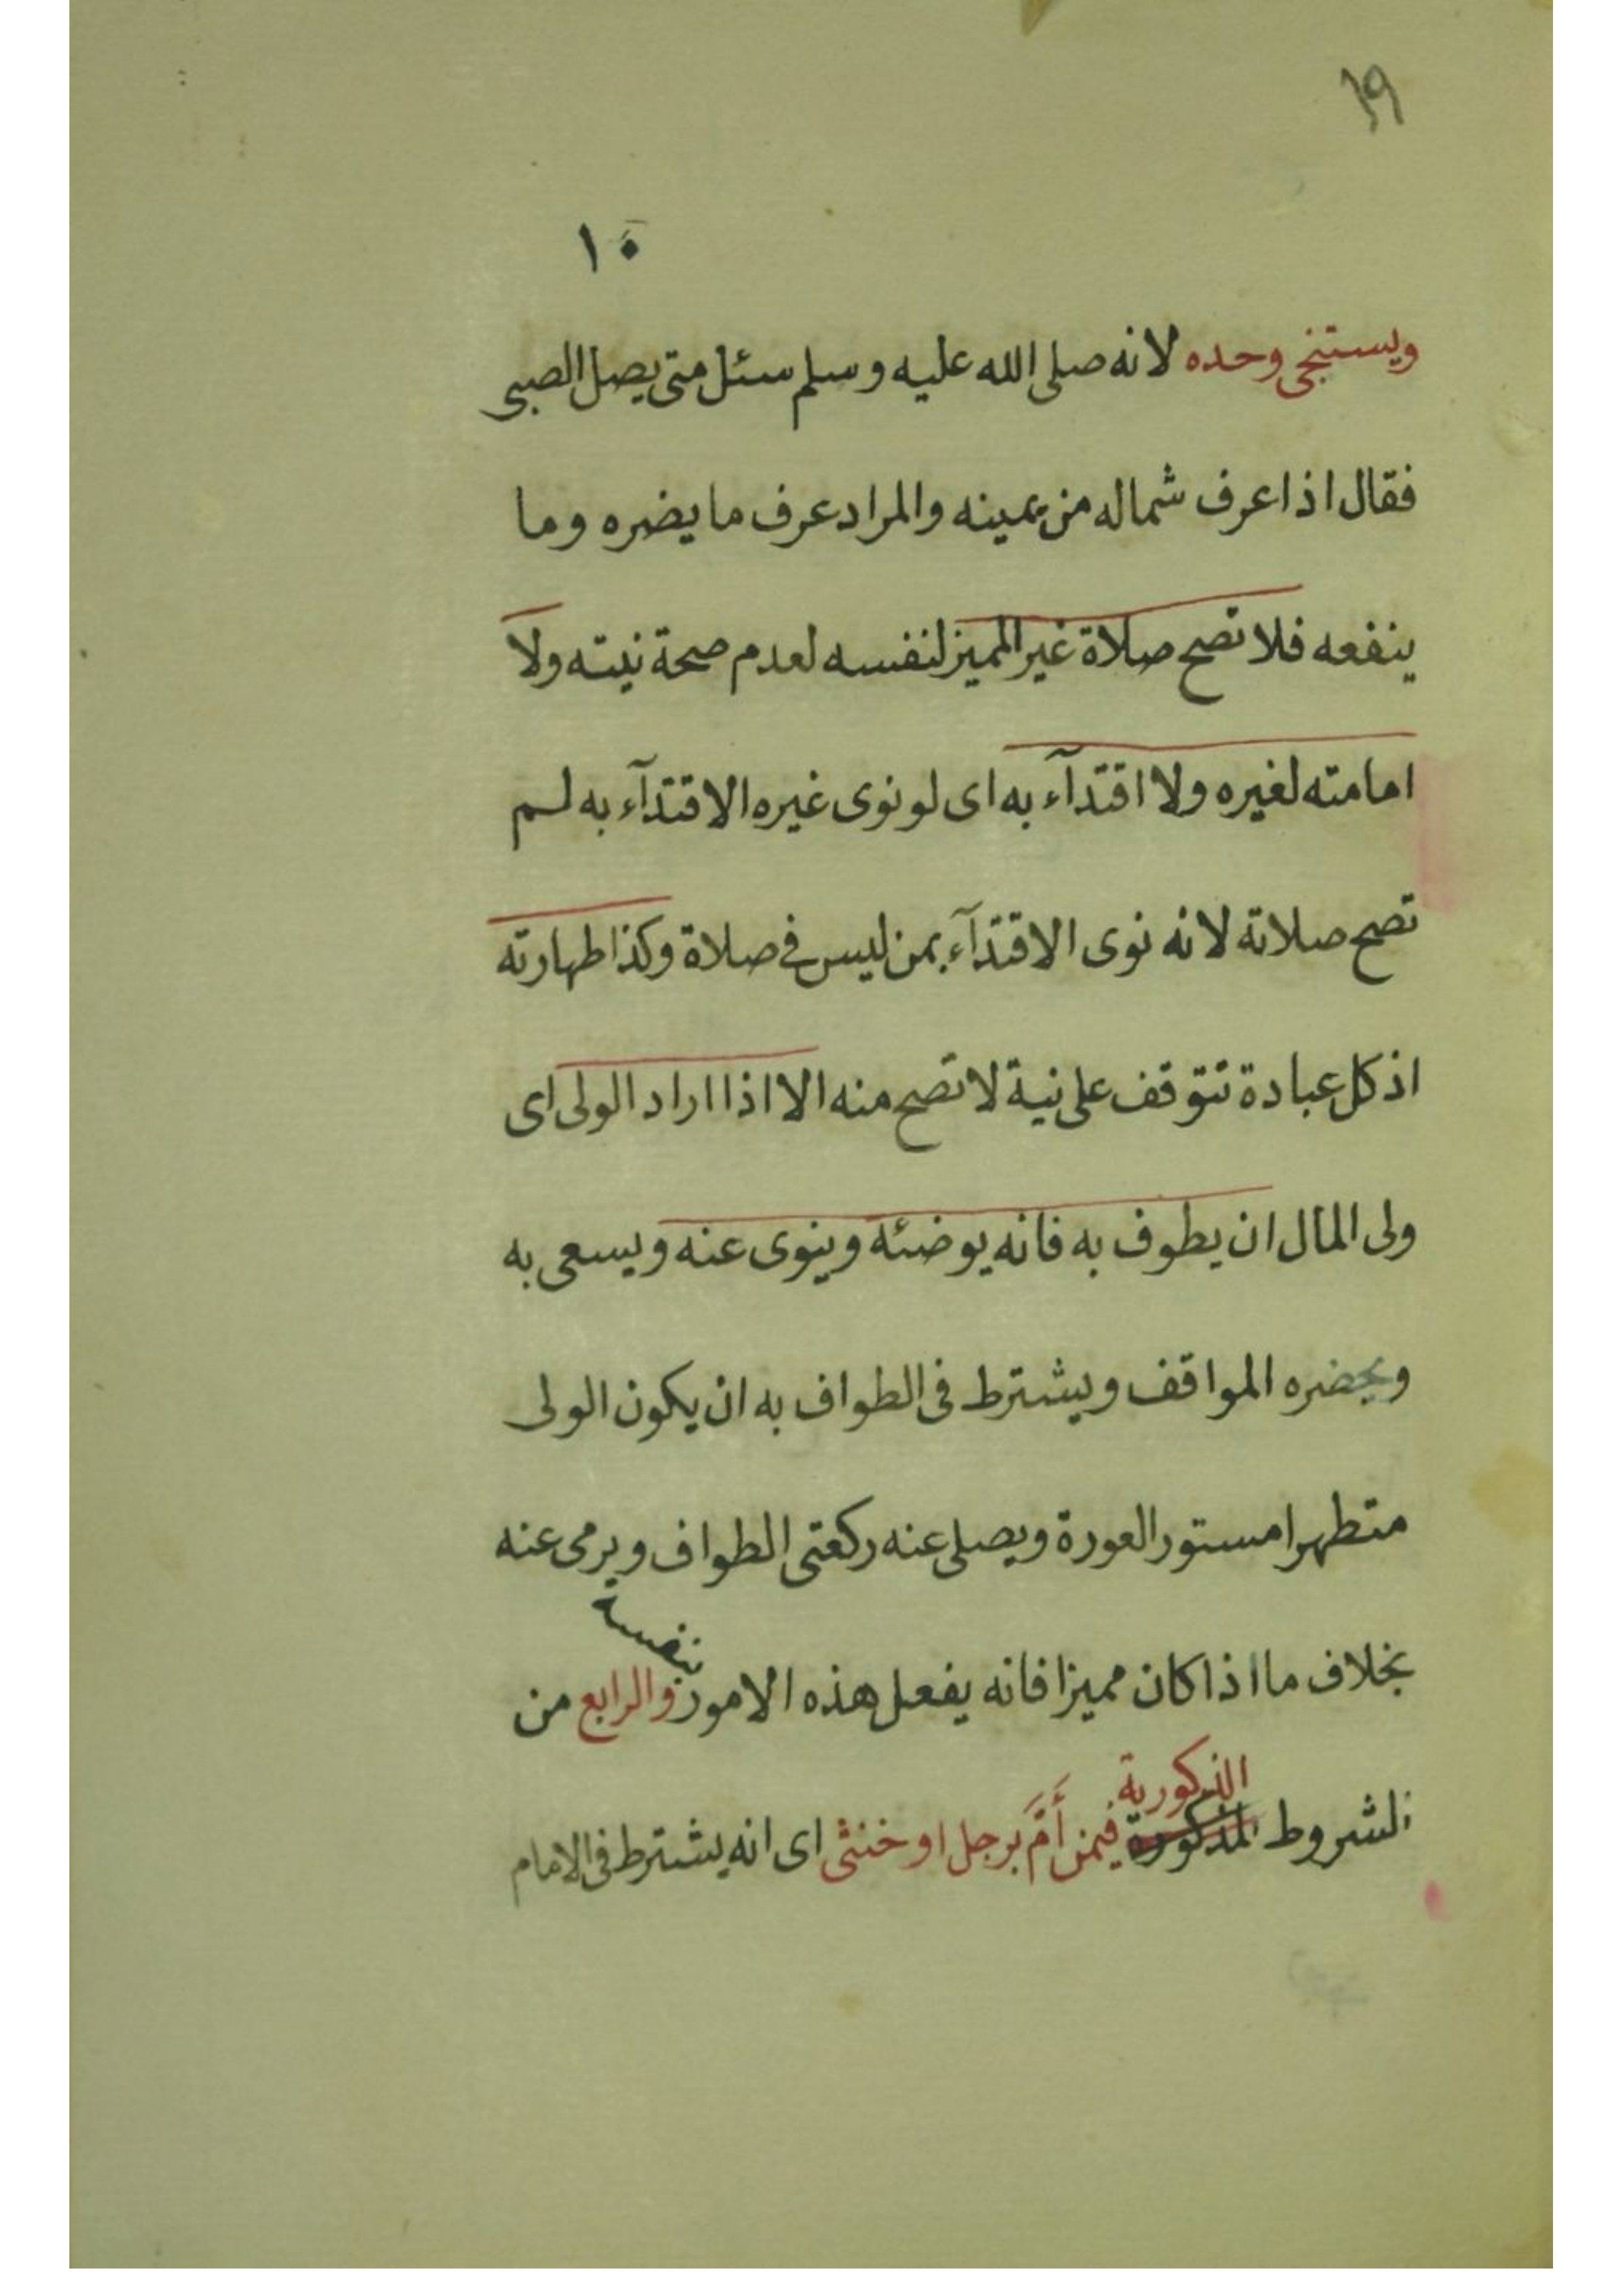 ١٩
١٠
ويستنجى وحده لانه صلى الله عليه وسلم سئل متى يصل الصبى
فقال اذا عرف شماله من يمينه والمراد عرف ما يضره وما
ينفعه فلا تصح صلاة غير المميز لنفسه لعدم صحة نيته ولا
امامته لغيره ولا اقتدآء به اى لو نوى غيره الاقتدآء به لم
تصح صلاته لانه نوى الاقتدآء بمن ليس فى صلاة وكذا طهارته
اذ كل عبادة تتوقف على نية لا تصح منه الا اذا اراد الولى اى
ولى المال ان يطوف به فانه يوضئه وينوى عنه ويسعى به
ويحضره المواقف ويشترط فى الطواف به ان يكون الولى
متطهرا مستور العورة ويصلى عنه ركعتى الطواف ويرمى عنه
بخلاف ما اذا كان مميزا فانه يفعل هذه الامور بنفسه والرابع من
الشروط المذكورة الذكورية فيمن أَمَّ برجل او خنثى اى انه يشترط فى الامام